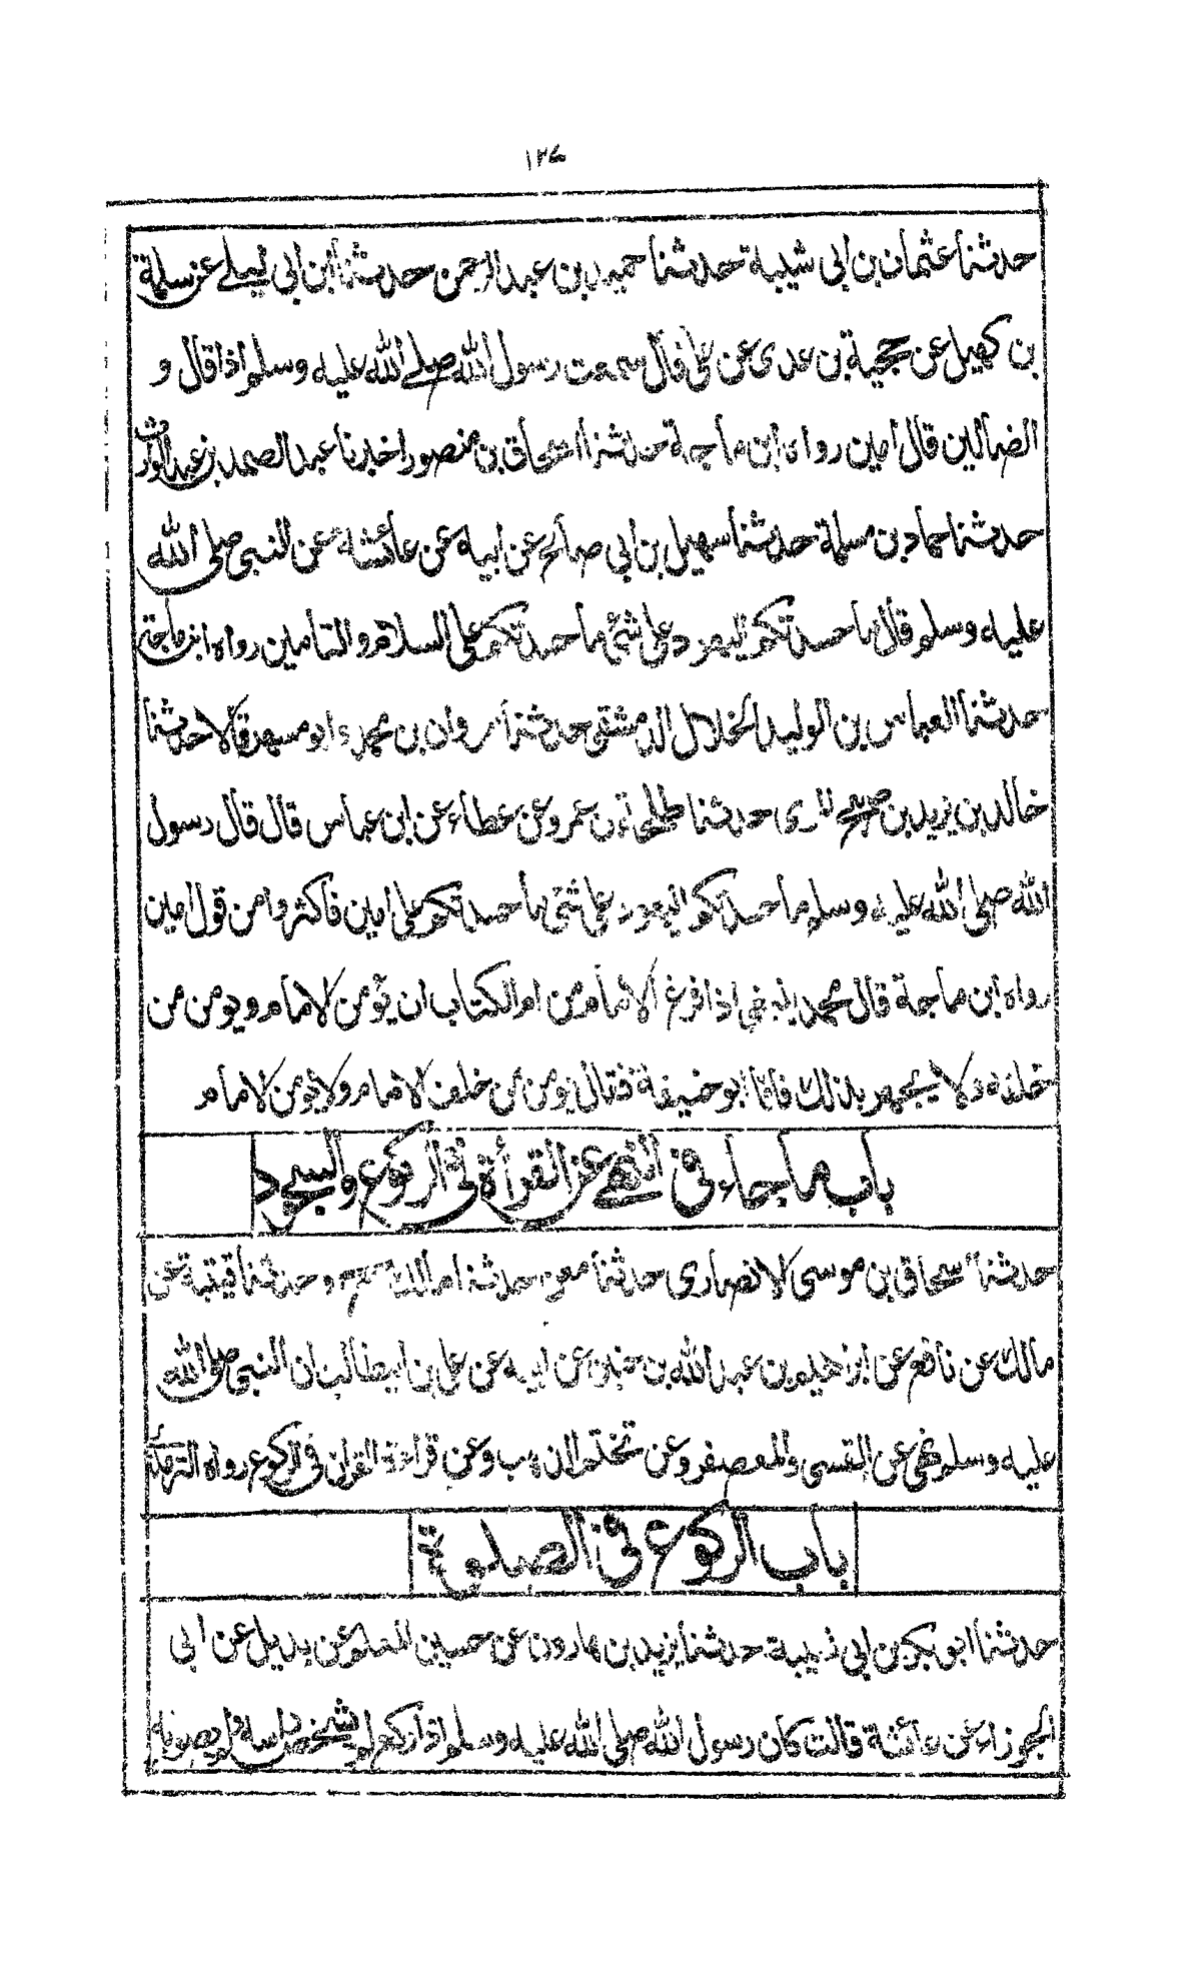 ١٢٤
حدثنا عثمان بن ابى شيبة حدثنا حميد بن عبد الرحمن حدثنا ابن ابى ليلے عن سلمة
بن كهيل عن حجية بن عدى عن على قال سمعت رسول الله صلے الله عليه وسلم اذا قال و
الضالين قال امين رواه ابن ماجة حدثنا اسحاق بن منصور اخبرنا عبد الصمد بن عبد الوارث
حدثنا حماد بن سلمة حدثنا سهيل بن ابى صالح عن ابيه عن عائشة عن النبى صلى الله
عليه وسلم قال ما حسدتكم اليهود على شئ ما حسدتكم على السلام والتامين رواه ابن ماجة
حدثنا العباس بن الوليد الخلال الدمشقى حدثنا مروان بن محمد وابو مسهر قالا حدثنا
خالد بن يزيد بن صبيح المرى حدثنا طلحة بن عمرو عن عطاء عن ابن عباس قال قال رسول
الله صلى الله عليه وسلم ما حسدتكم اليهود على شئ ما حسدتكم على امين فاكثروا من قول امين
رواه ابن ماجة قال محمد ينبغى اذا فرغ الامام من ام الكتاب ان يؤمن الامام ويومن من
خلفه ولا يجهر بذلك فاما ابو حنيفة فقال يومن من خلف الامام ولا يومن الامام
باب ما جاء فى النهے عن القرأة فى الركوع والسجود
حدثنا اسحاق بن موسى الانصارى حدثنا معن حدثنا مالك ح وحدثنا قيتبة عن
مالك عن نافع عن ابراهيم بن عبد الله بن حنين عن ابيه عن على بن ابيطالب ان النبى صلى الله
عليه وسلم نهى عن القسى والمعصفر وعن تختم الذهب وعن قراءة القران فى الركوع رواه الترمذى
باب الركوع فى الصلوة
حدثنا ابو بكر بن ابى شيبة حدثنا يزيد بن هارون عن حسين المعلم عن بديل عن ابى
الجوزاء عن عائشة قالت كان رسول الله صلى الله عليه وسلم اذا ركع لم يشخص راسه ولم يصوبه